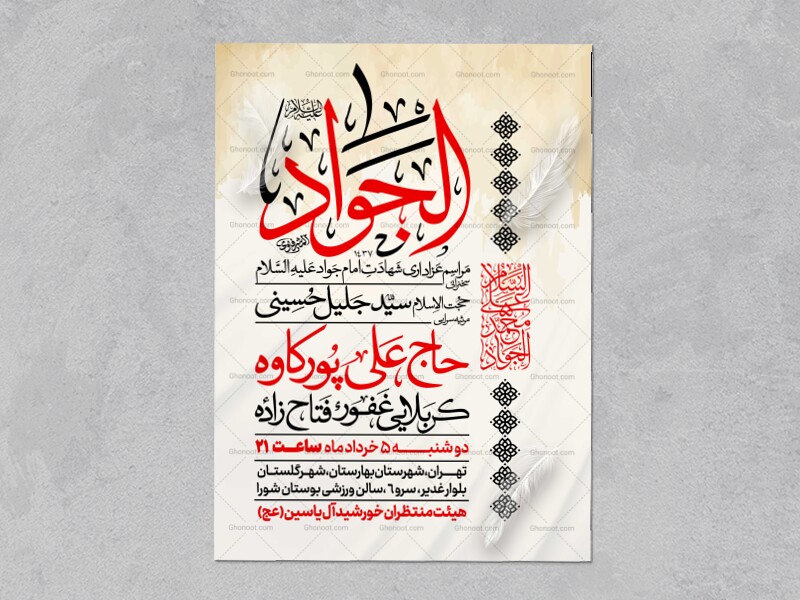 علیه السلام
الجواد
۱۴۳۷
مراسم عزاداری شهادتِ امام جواد علیه السَّلام
سخنرانی
حجت الاسلام سیّد جلیل حُسینی
مرثیه سرایی
حاج علی پورکاوه
کربلایی غفور فتاح زاده
دوشنبه ۵ خرداد ماه ساعت ۲۱
تهران، شهرستان بهارستان، شهر گلستان
بلوار غدیر، سرو ٦، سالن ورزشی بوستان شورا
هیئت منتظران خورشید آل یاسین (عج)
السلام
علی
محمد
الجواد
Ghonoot.com